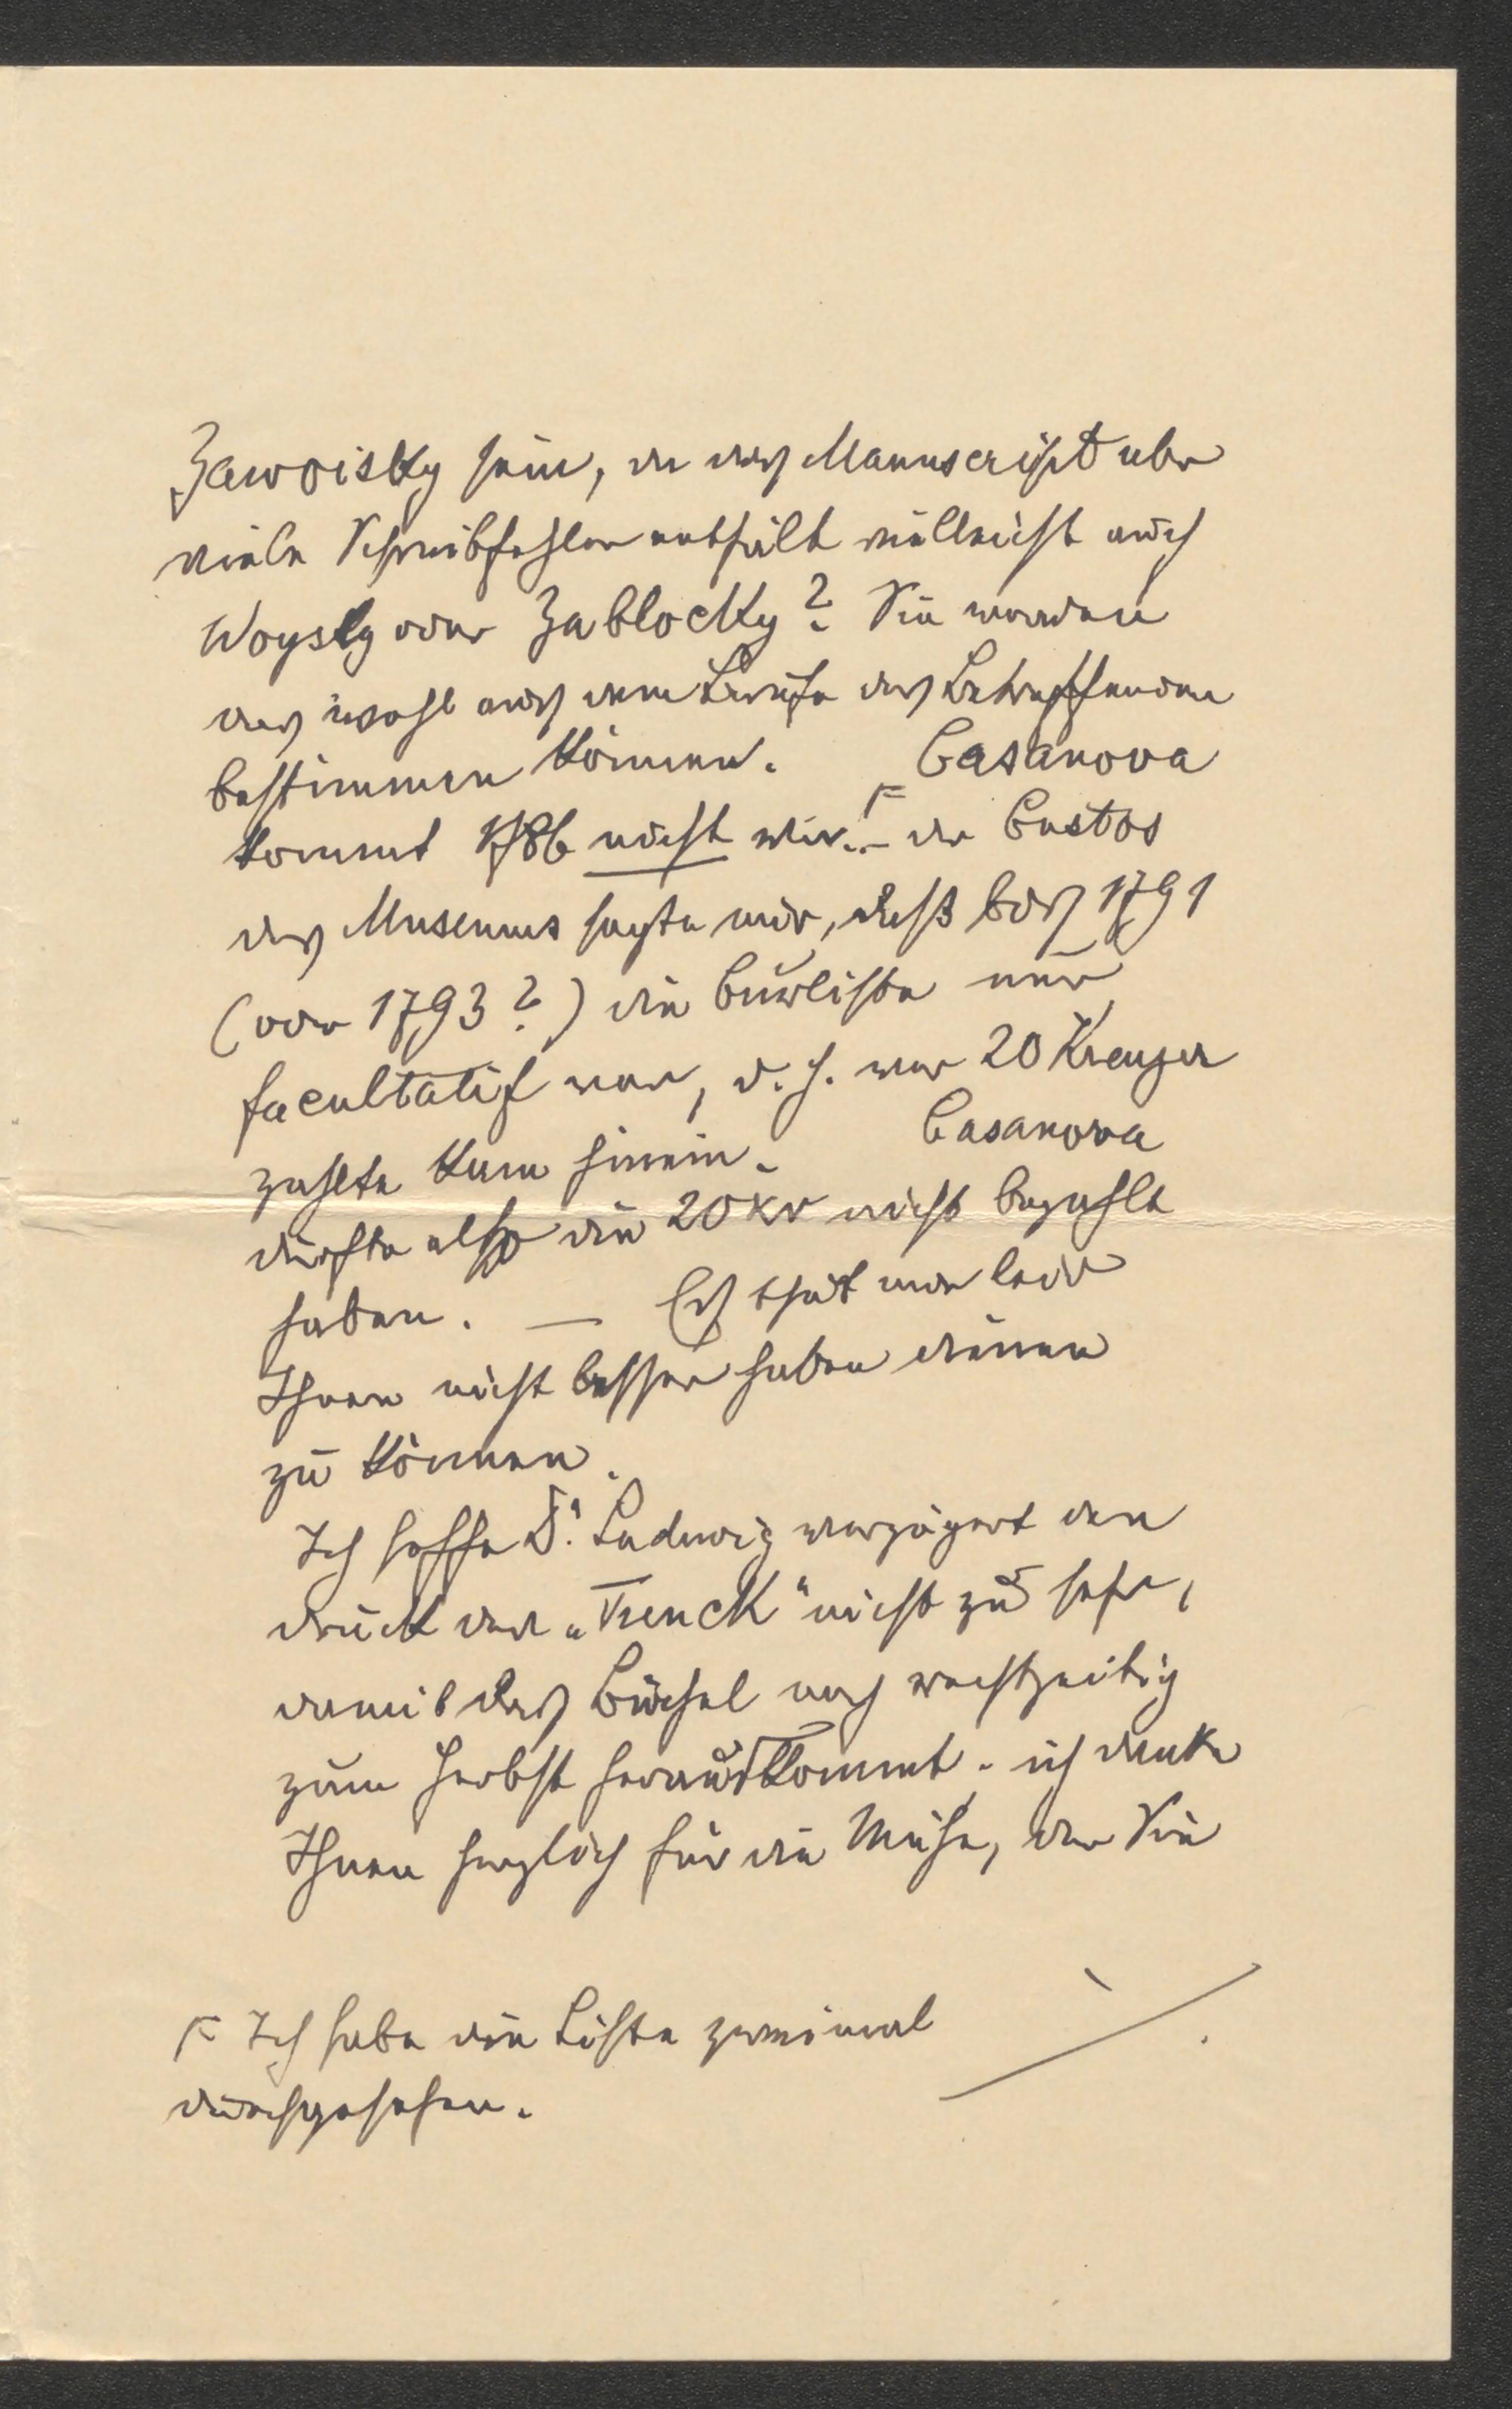 Zawoisky sein, da das Manuscript aber
viele Schreibfehler enthält vielleicht auch
Woysky oder Zablocky? Sie werden
das wohl aus dem Berufe des Betreffenden
bestimmen können. Casanova
kommt 1786 nicht vor. – der Custos
des Museums sagte mir, daß bis 1791
(oder 1793?) die Curliste nur
facultativ war, d. h. wer 20 Kreuzer
zahlte kam hinein. Casanova
dürfte also die 20 kr nicht bezahlt
haben. — Es thut mir leid
Ihnen nicht besser haben dienen
zu können.
Ich hoffe Dr. Ludwig verzögert den
Druck der „Trenck" nicht zu sehr,
damit das Büchel noch rechtzeitig
zum Herbst herauskommt. ich danke
Ihnen herzlich für die Mühe, der Sie
Ich habe die Liste zweimal
durchgesehen.